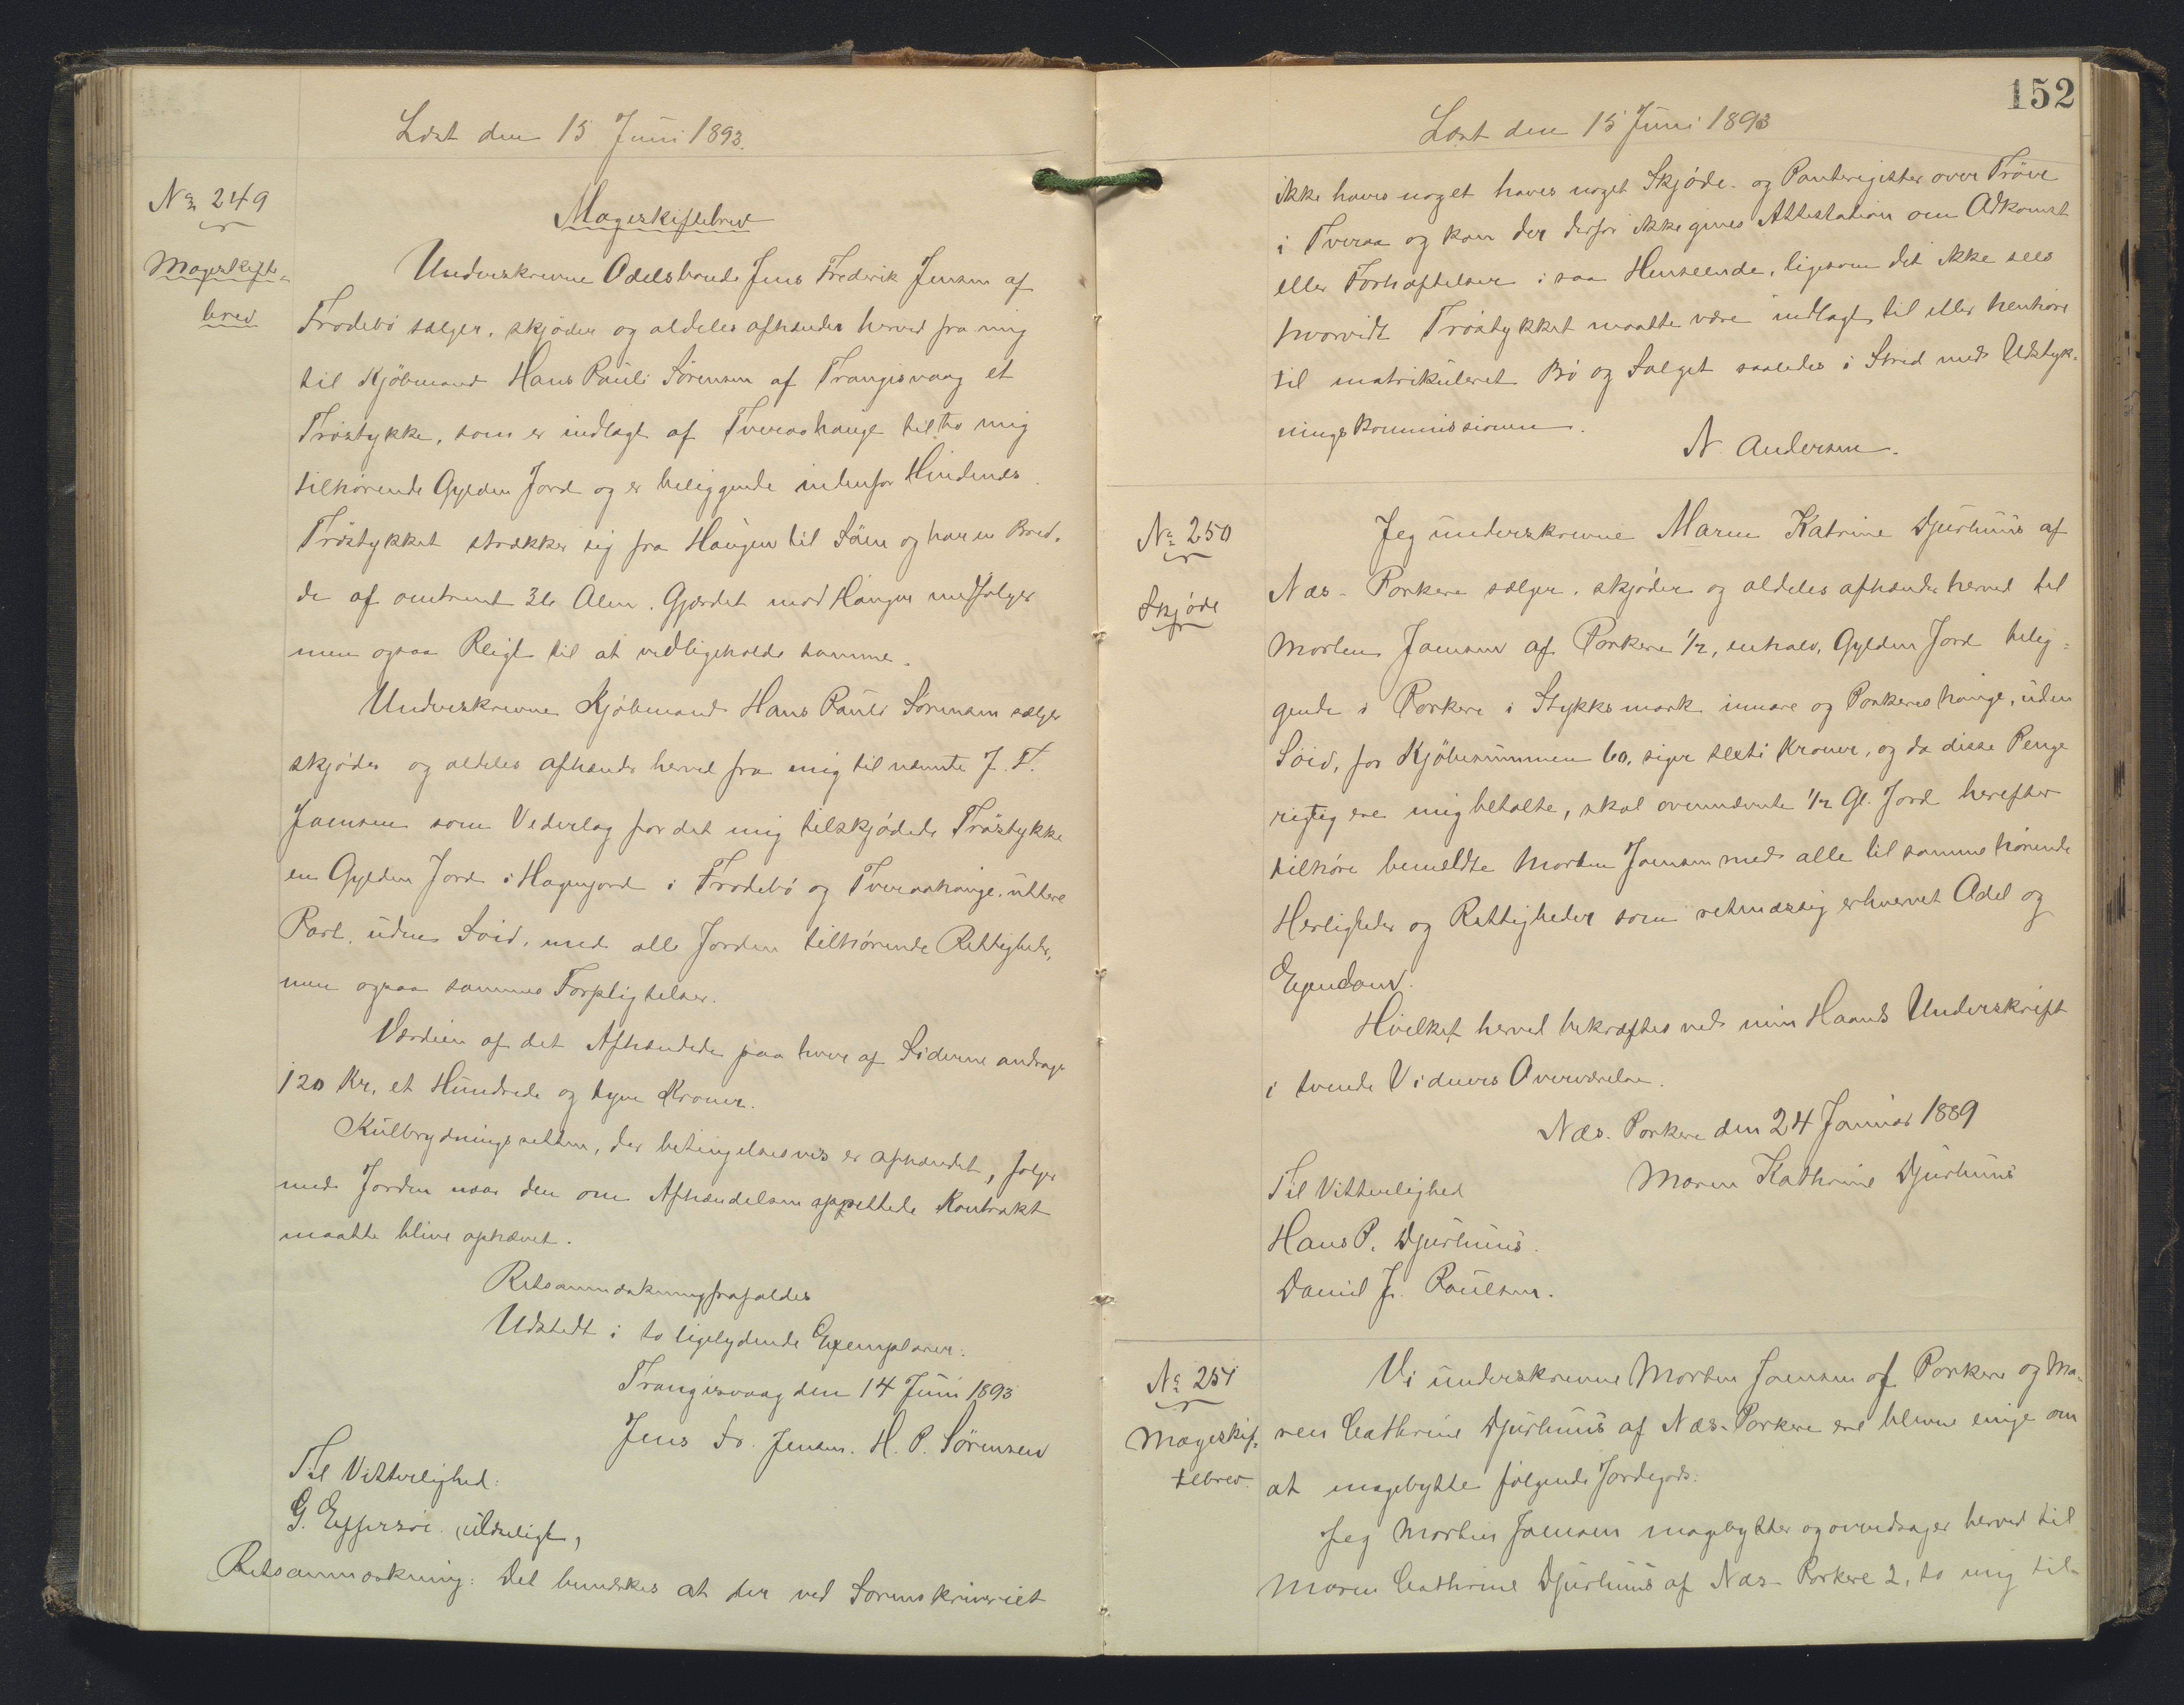 Læst den 15 Juni 1893.
No 249
Mageskifte-
brev
Mageskiftebrev
Underskrevne Odelsbonde Jens Frederik Jensen af
Frodebø sælger, skjøder og aldeles afhænder herved fra mig
til Kjøbmand Hans Pauli Sørensen af Trangisvaag et
Trøstykke, som er indlagt af Tveraahauge til to mig
tilhørende Gylden Jord og er beliggende indenfor Hindendes
Trøstykket strækker sig fra Haugen til Søen og har en Bred-
de af omtrent 36 Alen. Gjærdet mod Haugen medfølger
men ogsaa Pligt til at vedligeholde samme.
Underskrevne Kjøbmand Hans Pauli Sørensen sælger
skjøder og aldeles afhænder herved fra mig til nævnte J. F.
Joensen som Vederlag for det mig tilskjødede Trøstykke
en Gylden Jord i Hagensjord i Frodebø og Tveraahauge, uttere
Part, uden Soid, med alle Jorden tilhørende Rettigheder,
men ogsaa sammes Forpligtelser.
Værdien af det Afhændede paa hver af Siderne andrager
120 Kr, et Hundrede og tyve Kroner.
Kulbrydningsretten, der betingelsesvis er afhændet, følger
med Jorden naar den om Afhændelsen oprettede Kontrakt
maatte blive ophævet.
Retsanmærkning frafaldes
Udstedt i to ligelydende Exemplarer.
Trangisvaag den 14 Juni 1893
Jens Fr. Jensen. H. P. Sørensen
Til Vitterlighed:
G. Effersøe. (utseligt,
Retsanmærkning: Det bemærkes at der ved Sorenskriveriet
152
Læst den 15 Juni 1893
ikke haves noget haves noget Skjøde- og Panteregister over Trøve
i Tveraa og kan der derfor ikke gives Attestation om Adkomst
eller Forhæftelser i saa Henseende, ligesom det ikke sees
hvorvidt Trøstykket maatte være indlagt til eller henhøre
til matrikuleret Bø og Salget saaledes i Strid med Udstyk-
ningskommissionen.
N. Andersen.
No 250
Skjøde
Jeg underskrevne Maren Katrine Djurhuus af
Næs-Porkere sælger, skjøder og aldeles afhænder herved til
Morten Joensen af Porkere 1/2, en halv, Gylden Jord belig-
gende i Porkere i Stykksmark innare og Porkereshauge, uden
Soid, for Kjøbesummen 60, siger sexti Kroner, og da disse Penge
rigtig ere mig betalte, skal ovennævnte 1/2 Gl. Jord herefter
tilhøre bemeldte Morten Joensen med alle til samme hørende
Herligheder og Rettigheder som retmæssig erhvervet Odel og
Ejendom.
Hvilket herved bekræftes ved min Haands Underskrift
i tvende Vidners Overværelse.
Næs. Porkere den 24 Januar 1889
Maren Kathrine Djurhuus
Til Vitterlighed
Hans P. Djurhuus.
Daniel J. Poulsen.
No 251
Mageskif-
tebrev.
Vi underskrevne Morten Joensen af Porkere og Ma-
ren Cathrine Djurhuus af Næs-Porkere ere blevne enige om
at magebytte følgende Jordegods:
Jeg Morten Joensen magebytter og overdrager herved til
Maren Cathrine Djurhuus af Næs-Porkere 2, to mig til-